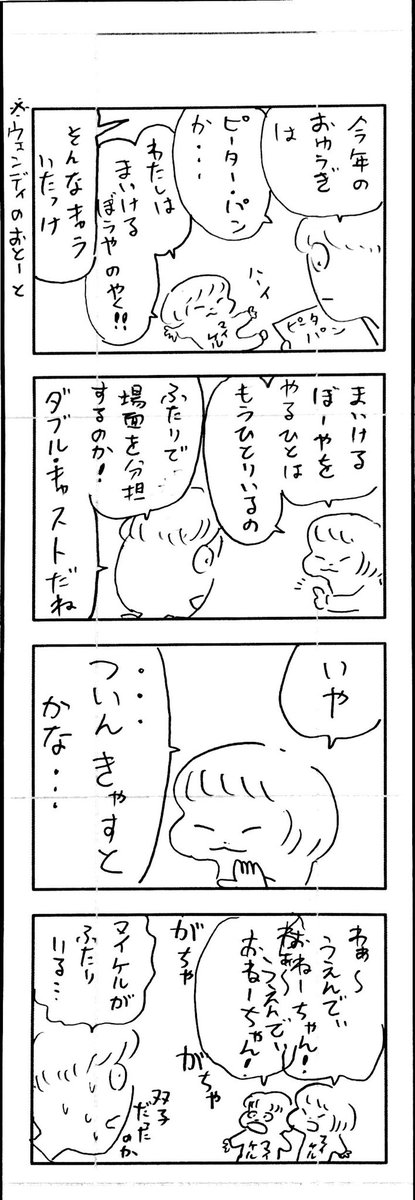 今年の
おゆうぎ
は
ピーター・パン
か・・・
わたしは
まいける
ぼうやのやく!!
そんなキャラ
いたっけ
ハイ
マイ
ケル
ピータ
パン
※ウェンディのおとーと
まいける
ぼーやを
やるひとは
もうひとりいるの
ふたりで
場面を分担
するのか!
ダブル・キャストだね
いや
・・・
ついんきゃすと
かな・・・
わぁ〜
うぇんでぃ
おねーちゃん!
わぁ〜
うぇんでぃ
おねーちゃん!
がちゃ
がちゃ
マイ
ケル
マイ
ケル
マイケルが
ふたり
いる…
双子
だった
のか